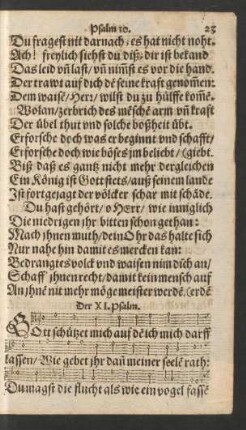 Psalm 10. 23
Du fragest nit darnach/ es hat nicht noht.
Ach! freylich siehst du diß/ dir ist bekand
Das leid uñ last/ uñ nim̃st es vor die hand.
Der trawt auf dich dē seine kraft genom̃en:
Dem waise/ Herr/ wilst du zu hülffe kom̃ē.
Wolan/ zerbrich des mēschē arm uñ kraft
Der übel thut und solche boßheit übt.
Erforsche doch was er beginnt und schafft/
Erforsche doch wie böses im beliebt/ (giebt.
Biß daß es gantz nicht mehr dergleichen
Ein König ist Gott stets/ auß seinem lande
Ist fortgejagt der völcker schar mit schāde.
Du hast gehört/ o Herr/ wie inniglich
Die nidrigen ihr bitten schon gethan:
Mach ihnen muth/ dein Ohr das halte sich
Nur nahe hin damit es mercken kan:
Bedrangtes volck und waisen nim dich an/
Schaff' ihnen recht/ damit kein mensch auf
An ihnē nit mehr möge meister werdē. (erdē
Der XI. Psalm.
GOtt schützet mich auf dē ich mich darff
lassen/ Wie gebet ihr dañ meiner seelē rath:
Du magst die flucht als wie ein vogel fassē